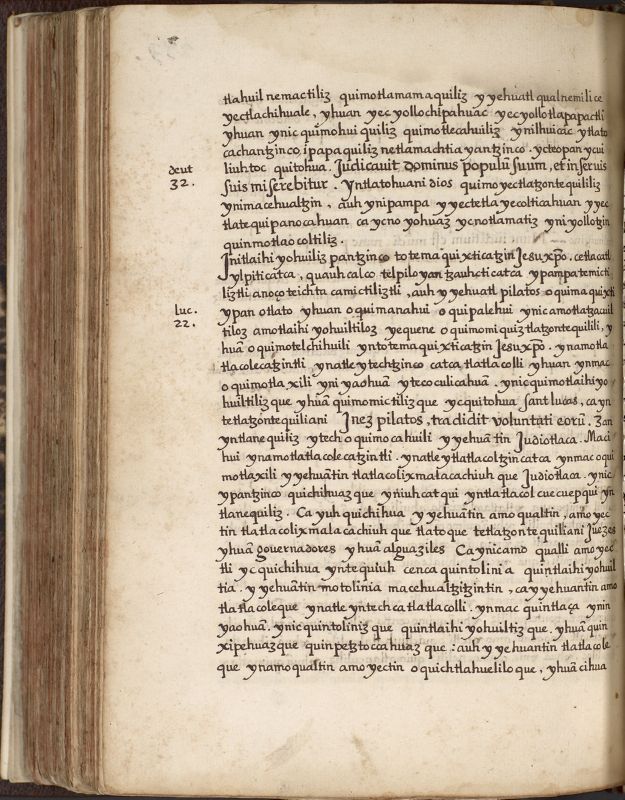 tlahuil nemactiliz quimotlamamaquiliz y yehuatl qualnemilice
yectlachihuale, yhuan yec yollo chipahuac yec yollotlapapactli
yhuan ynic quimohui quiliz quimotlecahuiliz yn ilhuicac ytlato
cachantzinco, ipapaquiliz netlamachtiayantzinco. yc teopan ycui
liuhtoc quitohua. Judicavit dominus populũ suum, et in servis
deut
32.
suis miserebitur. Yn tlatohuani dios quimoyectlatzontequililiz
yn imacehualtzin, auh yn ipampa yyectetla yecolticahuan yyec
tlatequipanocahuan ca ycno yohuaz ycnotlamatiz yn iyollotzin
quinmotlaocoltiliz.
Jnitlaihiyohuiliz pantzinco totemaquixticatzin Jesu xp̃o. ce tlacatl
ylpiticatca, quauhcalco telpiloyan tzauhcticatca ypampa temicti
liztli anoço teichtacamictiliztli, auh yyehuatl pilatos oquimaquixti
luc.
22.
ypan otlato yhuan oquimanahui oquipalehui ynic amo tlatzacuil
tiloz amo tlaihiyohuiltiloz yequene oquimomiquiztlatzontequilili, y
huã oquimotelchihuili yn totemaquixticatzin Jesu xp̃o. yn amo tla
tlacolecatzintli ynatle ytechtzinco catca tlatlacolli yhuan ynmac
oquimotlaxili yn iyaohuã ytecoculicahuã. ynic quimotlaihiyo
huiltilizque yhuã quimomictilizque yc quitohua Sant lucas, ca yn
tetlatzontequiliani Juez pilatos, tradidit voluntati eorũ. Zan
yn tlanequiliz ytech oquimocahuili yyehuãtin Judiotlaca. Maci
hui yn amo tlatlacolecatzintli. ynatle ytlatlacoltzin catca ynmac oqui
motlaxili yyehuãtin tlatlacolixmalacachiuhque Judiotlaca. ynic
ypantzinco quichihuazque yn iuhcatqui yn tlatlacolcuecuepqui yn
tlanequiliz. Ca yuh quichihua yyehuãtin amo qualtin, amo yec
tin tlatlacolixmalacachiuhque tlatoque tetlatzontequiliani Juezes
yhuã governadores yhuã alguaziles Ca ynic amo qualli amo yec
tli yc quichihua yn tequiuh cenca quintolinia quintlaihiyohuil
tia. yyehuãtin motolinia macehualtzitzintin, ca yyehuantin amo
tlatlacoleque ynatle yntech ca tlatlacolli. ynmac quintlaça ynin
yaohuã. ynic quintolinizque quintlaihiyohuiltizque. yhuã quin
xipehuazque quinpetztoccahuazque: auh yyehuantin tlatlacole
que yn amo qualtin amo yectin oquichtlahueliloque, yhuã cihua